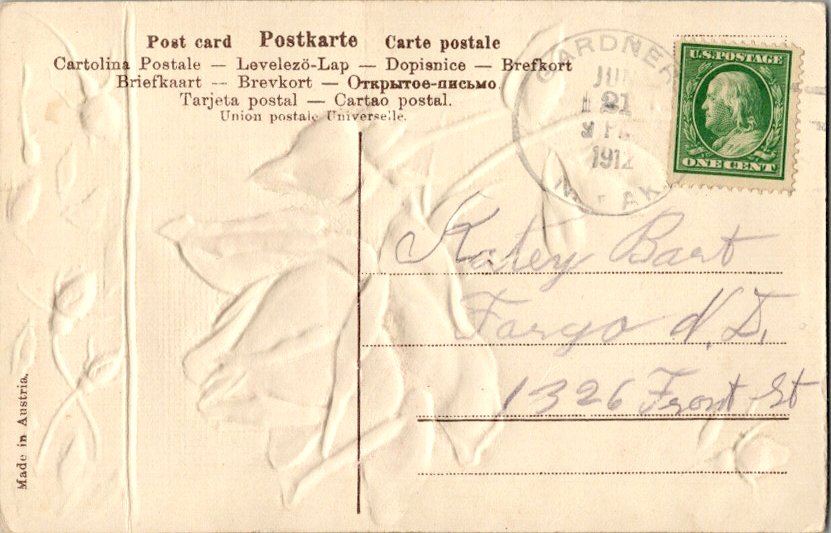 Post card Postkarte Carte postale
Cartolina Postale — Levelező-Lap — Dopisnice — Brefkort
Briefkaart — Brevkort — Открытое-письмо.
Tarjeta postal — Cartao postal.
Union postale Universelle.
GARDNER
JUN
21
1912
N. DAK.
U.S. POSTAGE
ONE CENT
Katey Bart
Fargo N.D.
1326 Front St
Made in Austria.